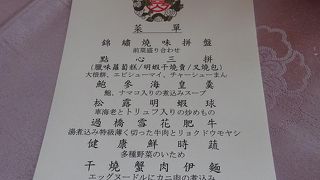 菜單
錦繡燒味拼盤
前菜盛り合わせ
點心三拼
(臘味蘿蔔糕/明蝦干燒賣/叉燒包)
大根餅、エビシューマイ、チャーシューまん
鮑參海皇羹
鮑、ナマコ入りの煮込みスープ
松露明蝦球
車海老とトリュフ入りの炒めもの
過橋雪花肥牛
湯煮込み特級薄く切った牛肉とリョクドウモヤシ
健康鮮時蔬
多種野菜のいため
干燒蟹肉伊麵
エッグヌードルにカニ肉の煮込み